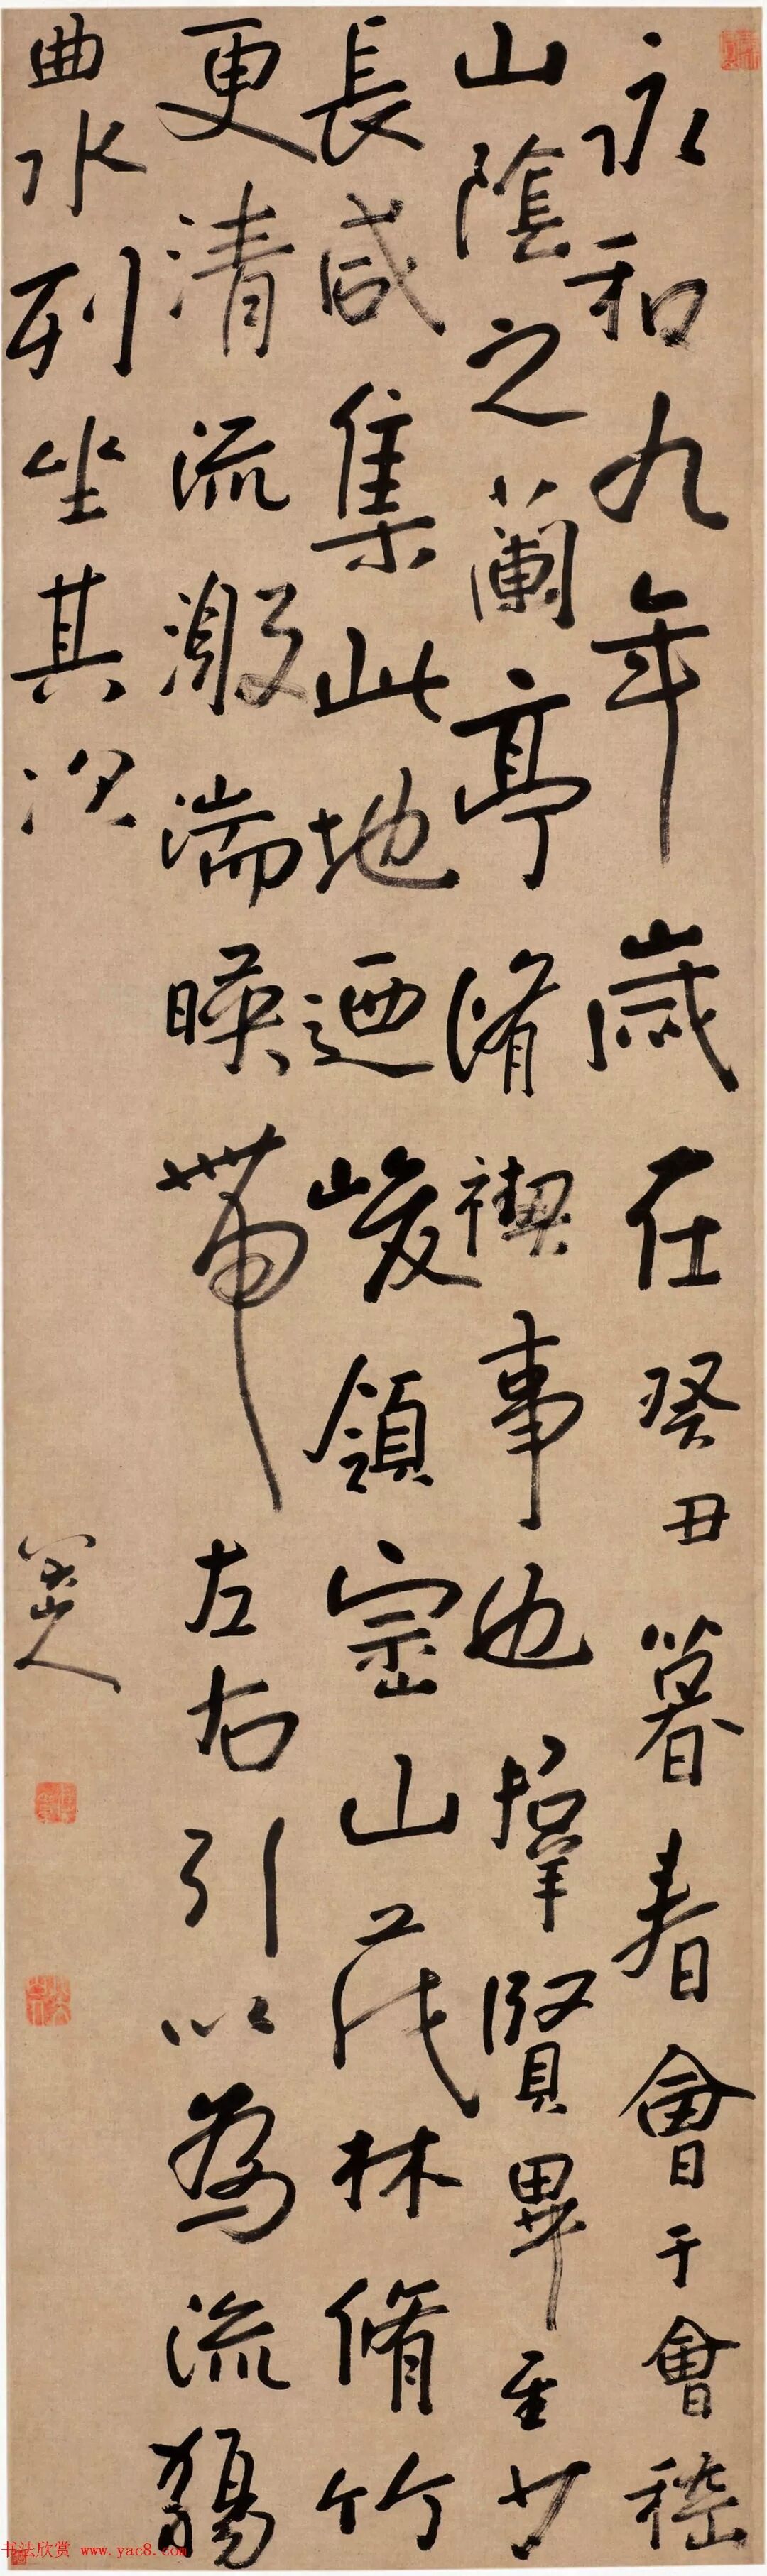 永和九年歲在癸丑暮春會于會稽
山陰之蘭亭脩禊事也羣賢畢至少
長咸集此地迺峻領崇山茂林脩竹
更清流激湍暎帶左右引以為流觴
曲水列坐其次
八大山人
书法欣赏 www.yac8.com